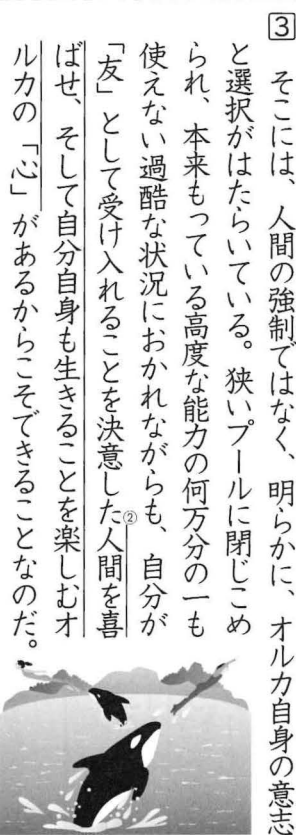 3 そこには、人間の強制ではなく、明らかに、オルカ自身の意志
と選択がはたらいている。狭いプールに閉じこめ
られ、本来もっている高度な能力の何万分の一も
使えない過酷な状況におかれながらも、自分が
「友」として受け入れることを決意した②人間を喜
ばせ、そして自分自身も生きることを楽しむオ
ルカの「心」があるからこそできることなのだ。